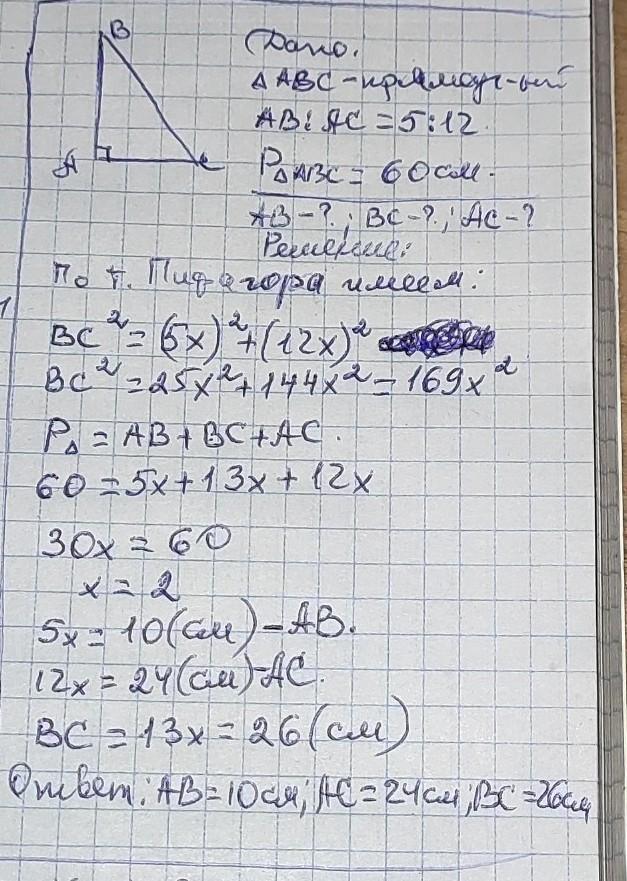 B
A
C
Дано.
△ABC-прямоуг-ый
AB:AC=5:12.
P△ABC=60см.
AB-?; BC-?; AC-?
Решение:
По т. Пифагора имеем:
BC²=(5x)²+(12x)²
BC²=25x²+144x²=169x²
P△=AB+BC+AC.
60=5x+13x+12x
30x=60
x=2
5x=10(см)-AB.
12x=24(см)-AC.
BC=13x=26(см)
Ответ: AB=10см; AC=24см; BC=26см